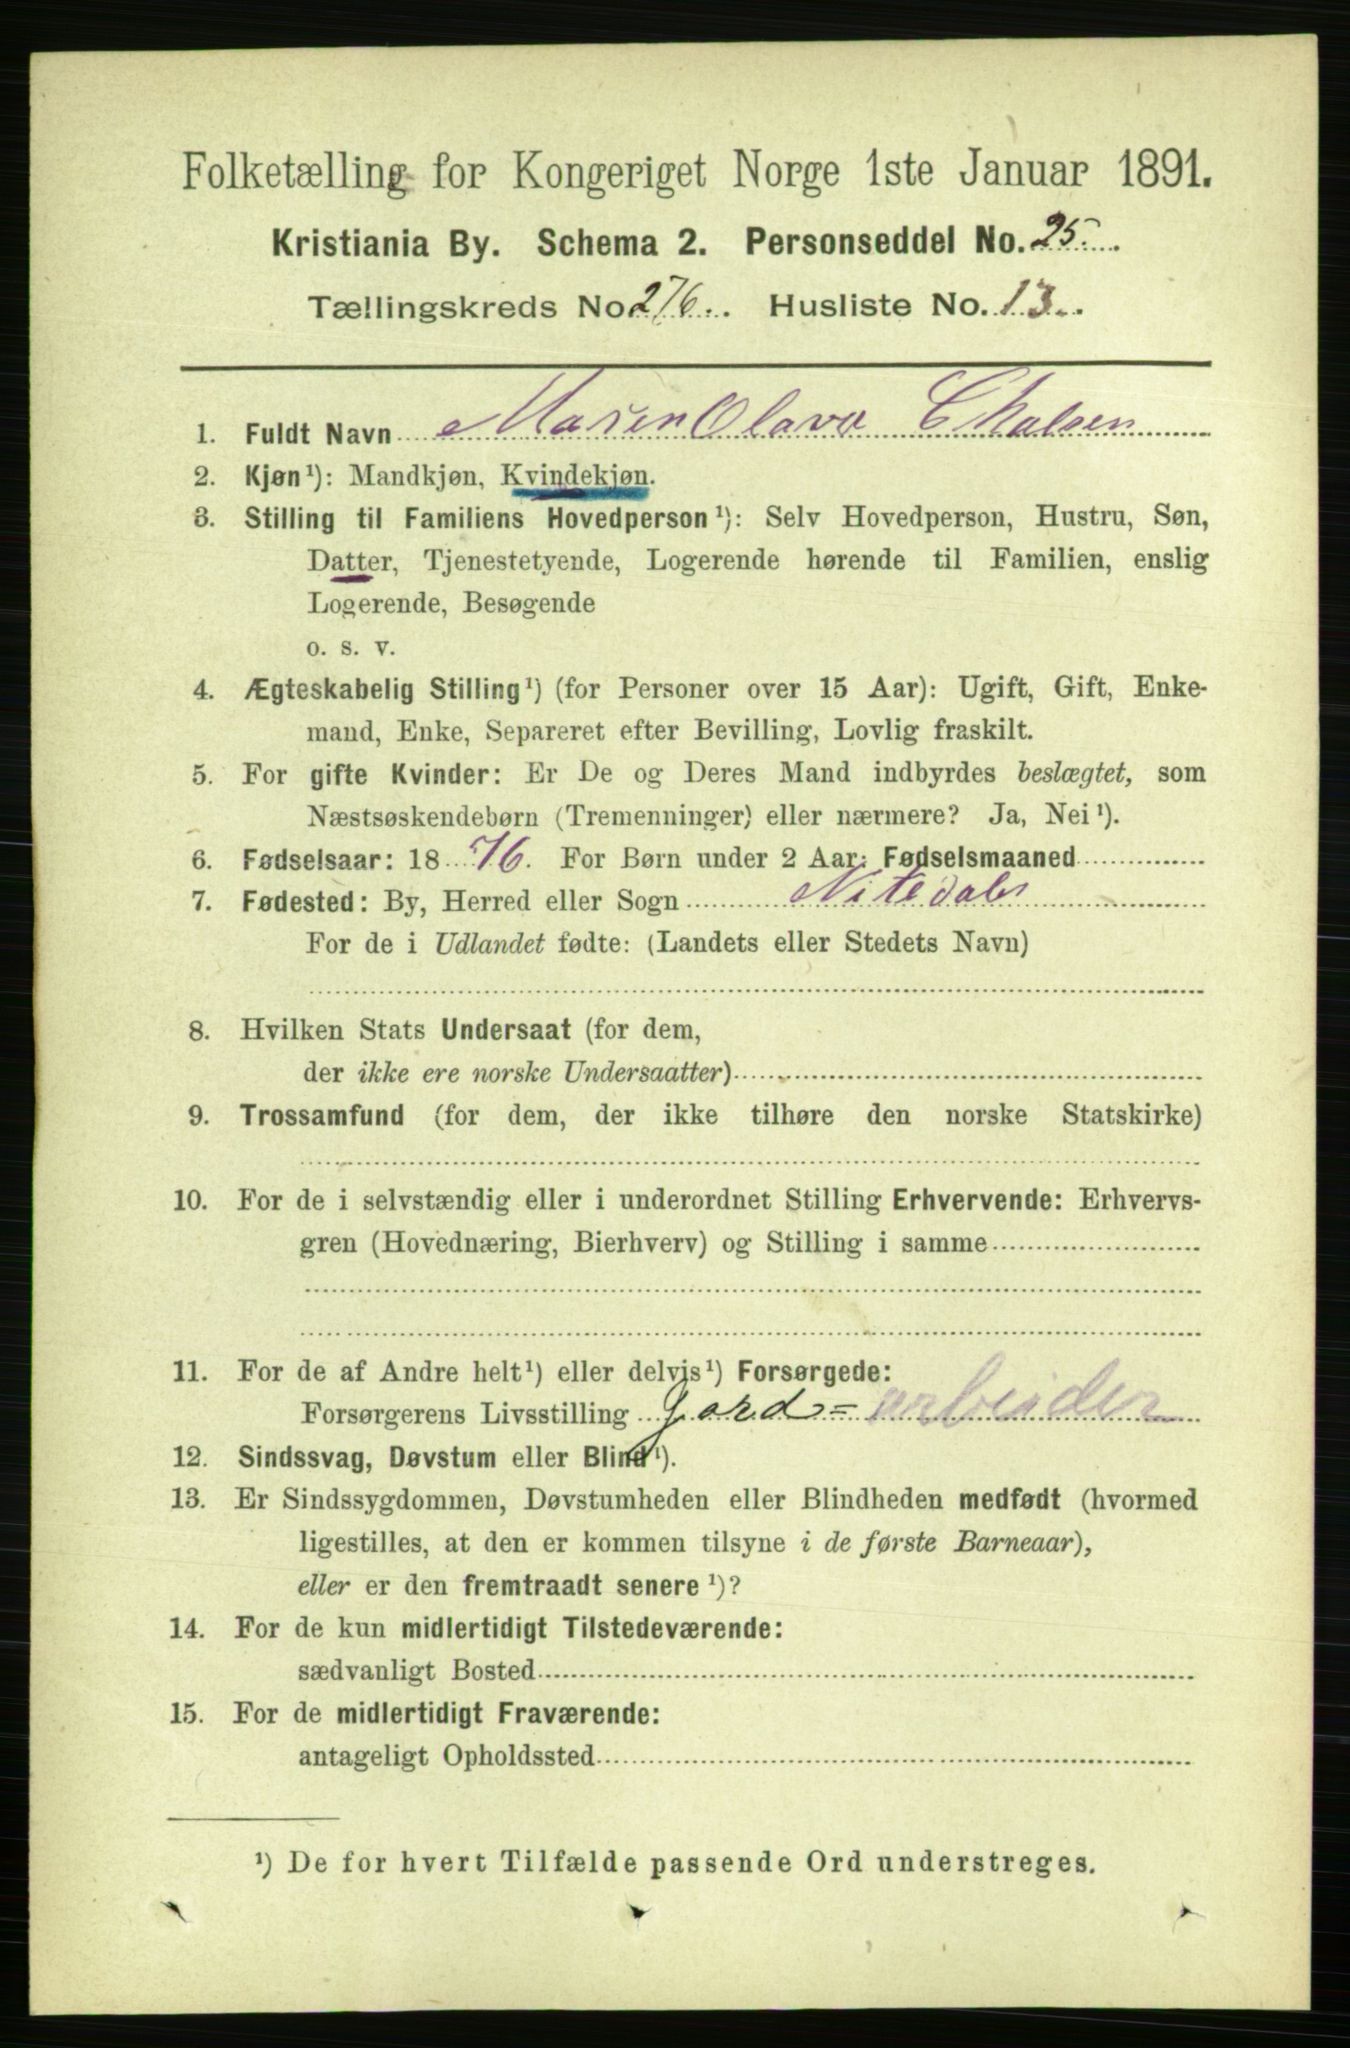 Folketælling for Kongeriget Norge 1ste Januar 1891.
Kristiania By. Schema 2. Personseddel No. 25.
Tællingskreds No 276. Husliste No. 13.
1. Fuldt Navn Maren Olava
2. Kjøn¹): Mandkjøn, Kvindekjøn.
3. Stilling til Familiens Hovedperson¹): Selv Hovedperson, Hustru, Søn,
Datter, Tjenestetyende, Logerende hørende til Familien, enslig
Logerende, Besøgende
o. s. v.
4. Ægteskabelig Stilling¹) (for Personer over 15 Aar): Ugift, Gift, Enke-
mand, Enke, Separeret efter Bevilling, Lovlig fraskilt.
5. For gifte Kvinder: Er De og Deres Mand indbyrdes beslægtet, som
Næstsøskendebørn (Tremenninger) eller nærmere? Ja, Nei¹).
6. Fødselsaar: 1876. For Børn under 2 Aar: Fødselsmaaned
7. Fødested: By, Herred eller Sogn Nitedalen
For de i Udlandet fødte: (Landets eller Stedets Navn)
8. Hvilken Stats Undersaat (for dem,
der ikke ere norske Undersaatter)
9. Trossamfund (for dem, der ikke tilhøre den norske Statskirke)
10. For de i selvstændig eller i underordnet Stilling Erhvervende: Erhvervs-
gren (Hovednæring, Bierhverv) og Stilling i samme
11. For de af Andre helt¹) eller delvis¹) Forsørgede:
Forsørgerens Livsstilling Jord=arbeider
12. Sindssvag, Døvstum eller Blind¹).
13. Er Sindssygdommen, Døvstumheden eller Blindheden medfødt (hvormed
ligestilles, at den er kommen tilsyne i de første Barneaar),
eller er den fremtraadt senere¹)?
14. For de kun midlertidigt Tilstedeværende:
sædvanligt Bosted
15. For de midlertidigt Fraværende:
antageligt Opholdssted
¹) De for hvert Tilfælde passende Ord understreges.